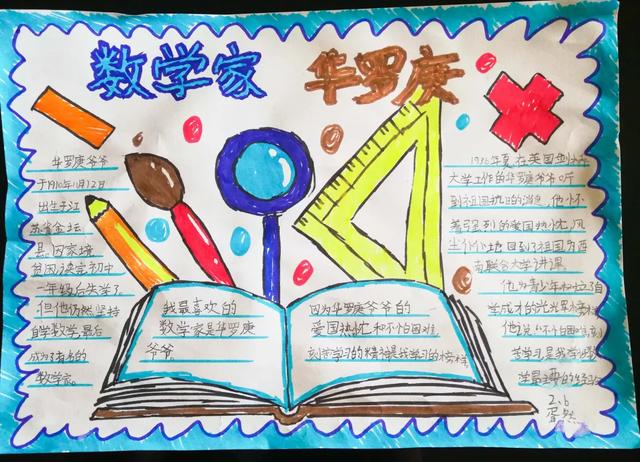 数学家 华罗庚
华罗庚爷爷
于1910年11月12日
出生于江
苏省金坛
县。因家境
贫困,读完初中
一年级后失学了
但他仍然坚持
自学数学,最后
成为了有名的
数学家。
我最喜欢的
数学家是华罗庚
爷爷。
因为华罗庚爷爷的
爱国热忱和不怕困难
刻苦学习的精神是我学习的榜样
年夏在英国剑
大学工作的华罗庚爷爷听
到祖国抗日的消息,他怀
着强烈的爱国热忱,风
尘仆仆地回到了祖国为西
南联合大学讲课。
他为青少年树立自
学成才的光光辉榜样
他说"不怕困难,刻
苦学习是我学
学最主要的经验
2.6